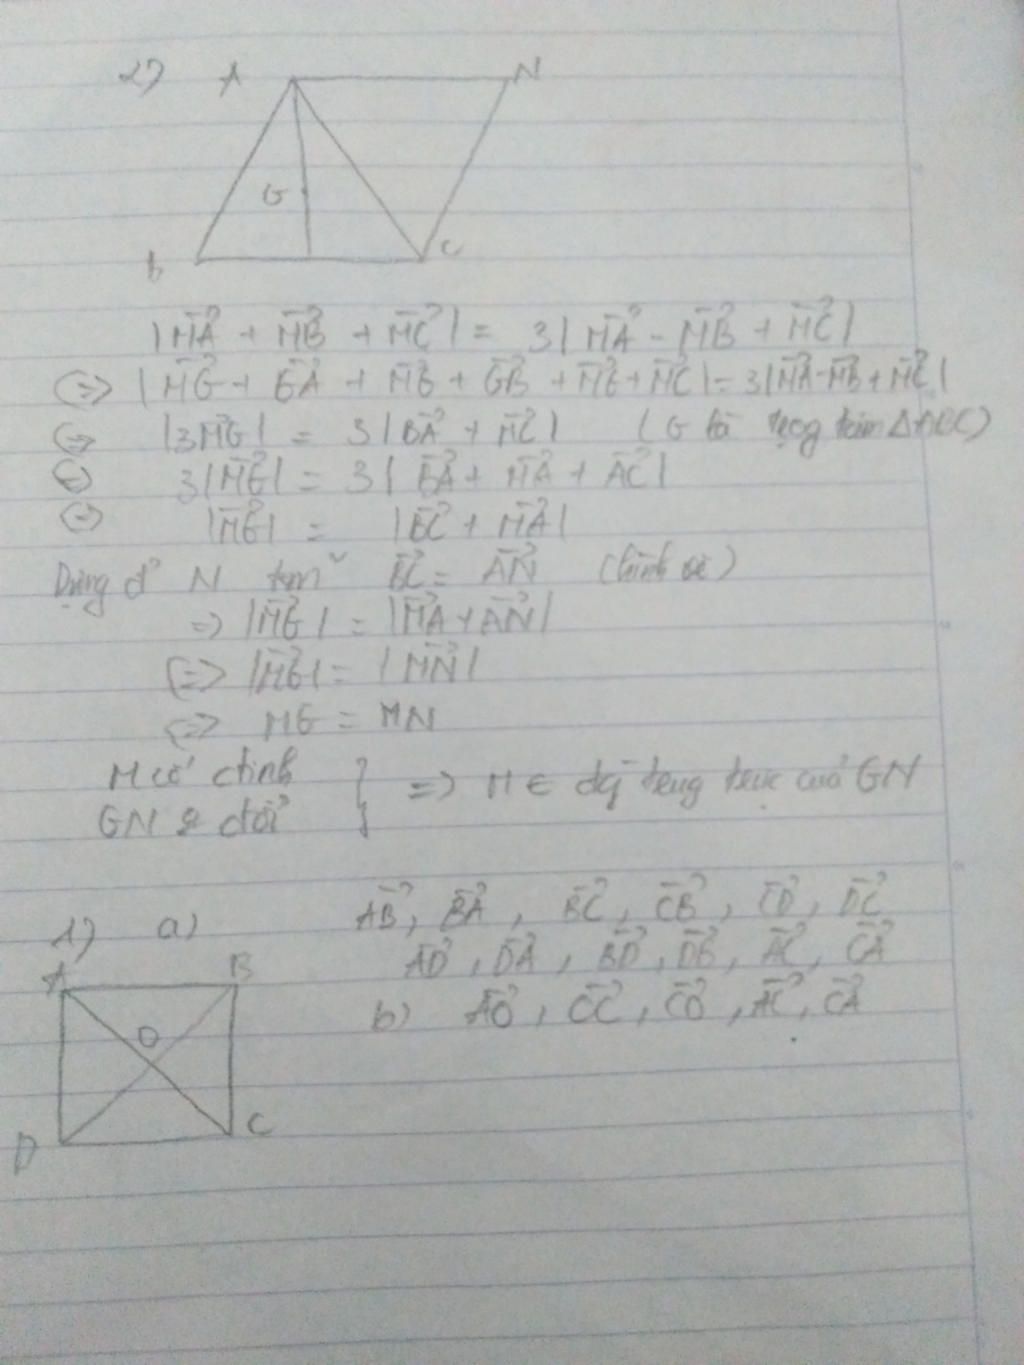 2) A N
G
b C
|MA→ + MB→ + MC→| = 3|MA→ - MB→ + MC→|
(=) |MG→ + GA→ + MG→ + GB→ + MG→ + MC→| = 3|MA→ - MB→ + MC→|
(=) |3MG→| = 3|BA→ + MC→| (G là trọng tâm ΔABC)
(=) 3|MG→| = 3|BA→ + MA→ + AC→|
(=) |MG→| = |BC→ + MA→|
Dựng đ' N tm BC→ = AN→ (hình vẽ)
=> |MG→| = |MA→ + AN→|
(=> |MG→| = |MN→|
(=> MG = MN
M cố định } => M ∈ đg trung trực của GN
GN đổi
1) a) AB→, BA→, BC→, CB→, CD→, DC→
AD→, DA→, BD→, DB→, AC→, CA→
b) AO→, OC→, CO→, AC→, CA→
A B
O
D C